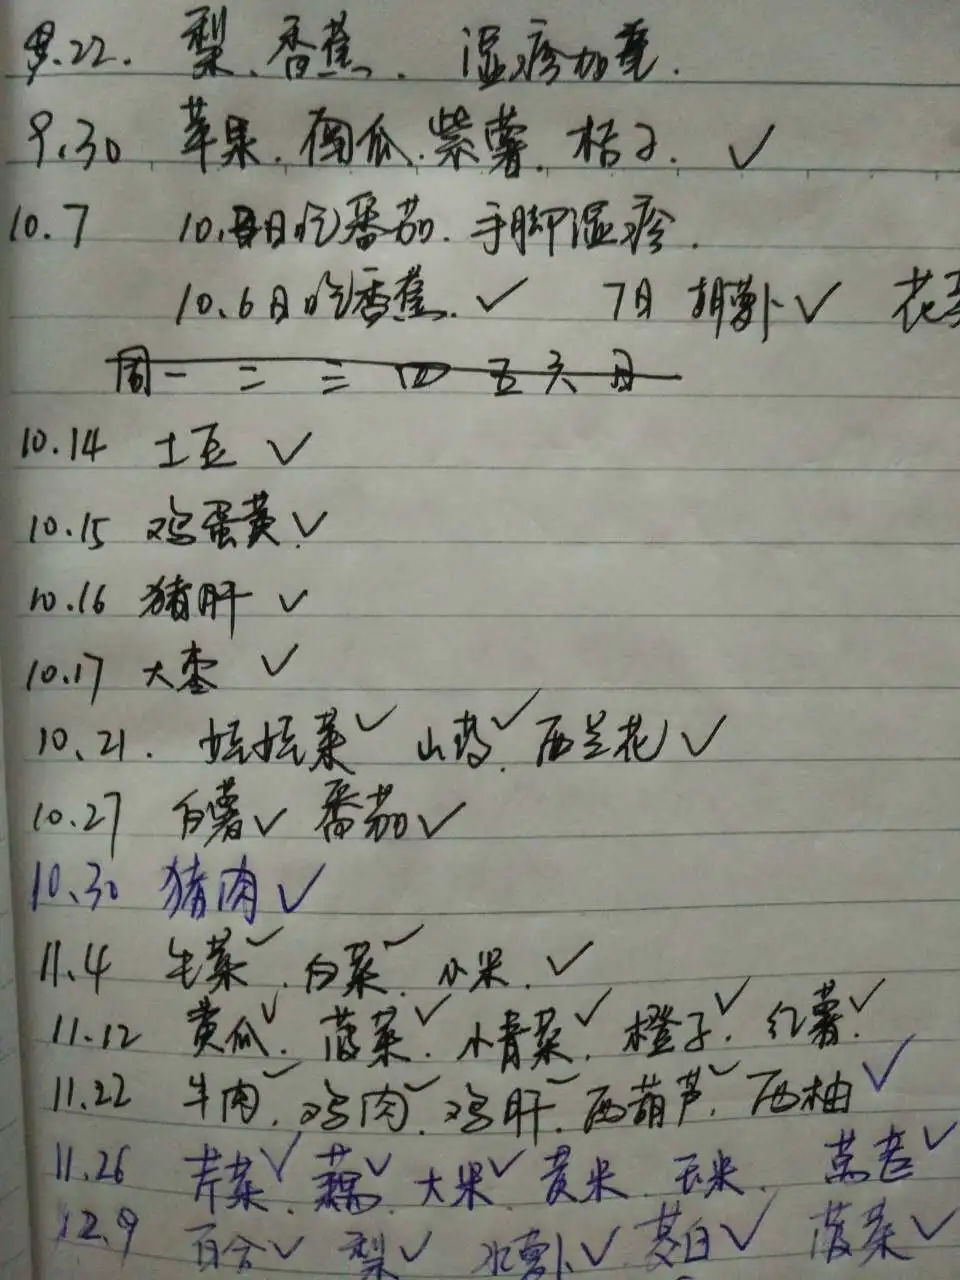 9.22. 梨、香蕉. 湿疹加重.
9.30 苹果. 南瓜. 紫薯. 桔子. ✓
10.7 10. 日吃番茄. 手脚湿疹.
10.6日吃香蕉. ✓ 7日 胡萝卜✓ 花菜
周一 二 三 四 五 六 日
10.14 土豆 ✓
10.15 鸡蛋黄 ✓
10.16 猪肝 ✓
10.17 大枣 ✓
10.21. 娃娃菜✓ 山药✓. 西兰花✓
10.27 白薯✓ 番茄✓
10.30 猪肉✓
11.4 生菜✓. 白菜✓. 小米. ✓
11.12 黄瓜✓. 菠菜✓. 小青菜✓. 橙子✓. 红薯✓.
11.22 牛肉✓. 鸡肉✓. 鸡肝✓. 西葫芦✓. 西柚✓
11.26 芹菜✓. 藕✓. 大米✓ 麦米. 玉米. 莴苣✓
12.9 百合✓ 梨✓ 水萝卜✓ 茭白✓ 菠菜✓